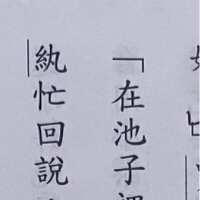 「在池子
紈忙回說